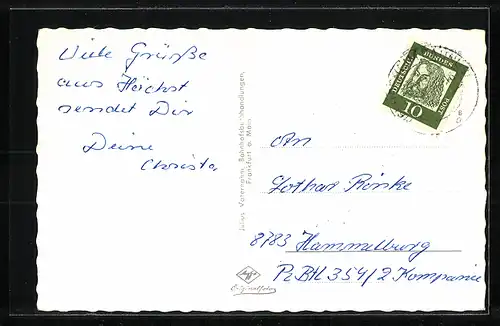 Viele Grüße
aus Höchst
sendet Dir
Deine
Christa
Julius Vaternahm, Bahnhofsbuchhandlungen,
Frankfurt a. Main
DEUTSCHE BUNDESPOST
10
An
Lothar Rinke
8783 Hammelburg
PzBtl 354/2 Kompanie
Agfa
Originalfoto